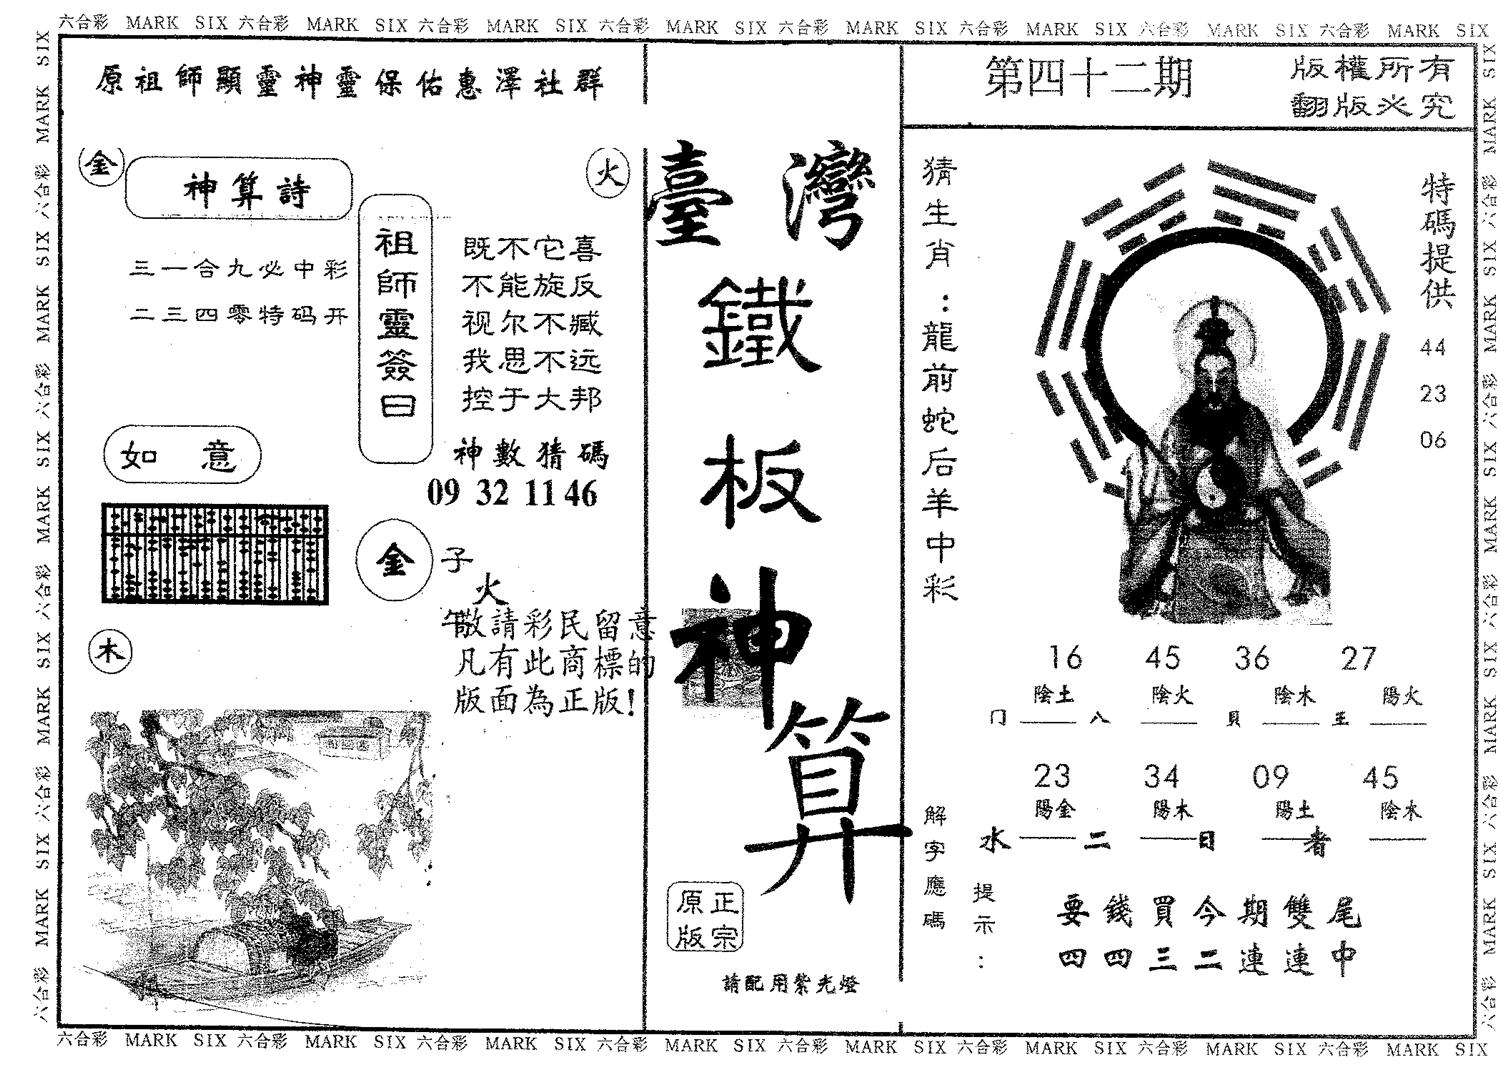 六合彩 MARK SIX 六合彩 MARK SIX 六合彩 MARK SIX 六合彩 MARK SIX 六合彩 MARK SIX 六合彩 MARK SIX 六合彩 MARK SIX 六合彩 MARK SIX
原祖師顯靈神靈保佑惠澤社群
金
神算詩
三一合九必中彩
二三四零特码开
火
祖師靈簽曰
既不它喜
不能旋反
视尔不臧
我思不远
控于大邦
神數猜碼
09 32 11 46
如意
金
子
火
午
敬請彩民留意
凡有此商標的
版面為正版!
木
臺灣
鐵
板
神
算
正宗
原版
請配用紫光燈
第四十二期
版權所有
翻版必究
猜生肖:龍前蛇后羊中彩
特碼提供
44
23
06
16 45 36 27
陰土 陰火 陰木 陽火
门 八 貝 王
23 34 09 45
陽金 陽木 陽土 陰木
水 二 日 者
解字應碼
提示:
要錢買今期雙尾
四四三二連連中
六合彩 MARK SIX 六合彩 MARK SIX 六合彩 MARK SIX 六合彩 MARK SIX 六合彩 MARK SIX 六合彩 MARK SIX 六合彩 MARK SIX 六合彩 MARK SIX
六合彩 MARK SIX 六合彩 MARK SIX 六合彩 MARK SIX 六合彩 MARK SIX 六合彩 MARK SIX
六合彩 MARK SIX 六合彩 MARK SIX 六合彩 MARK SIX 六合彩 MARK SIX 六合彩 MARK SIX